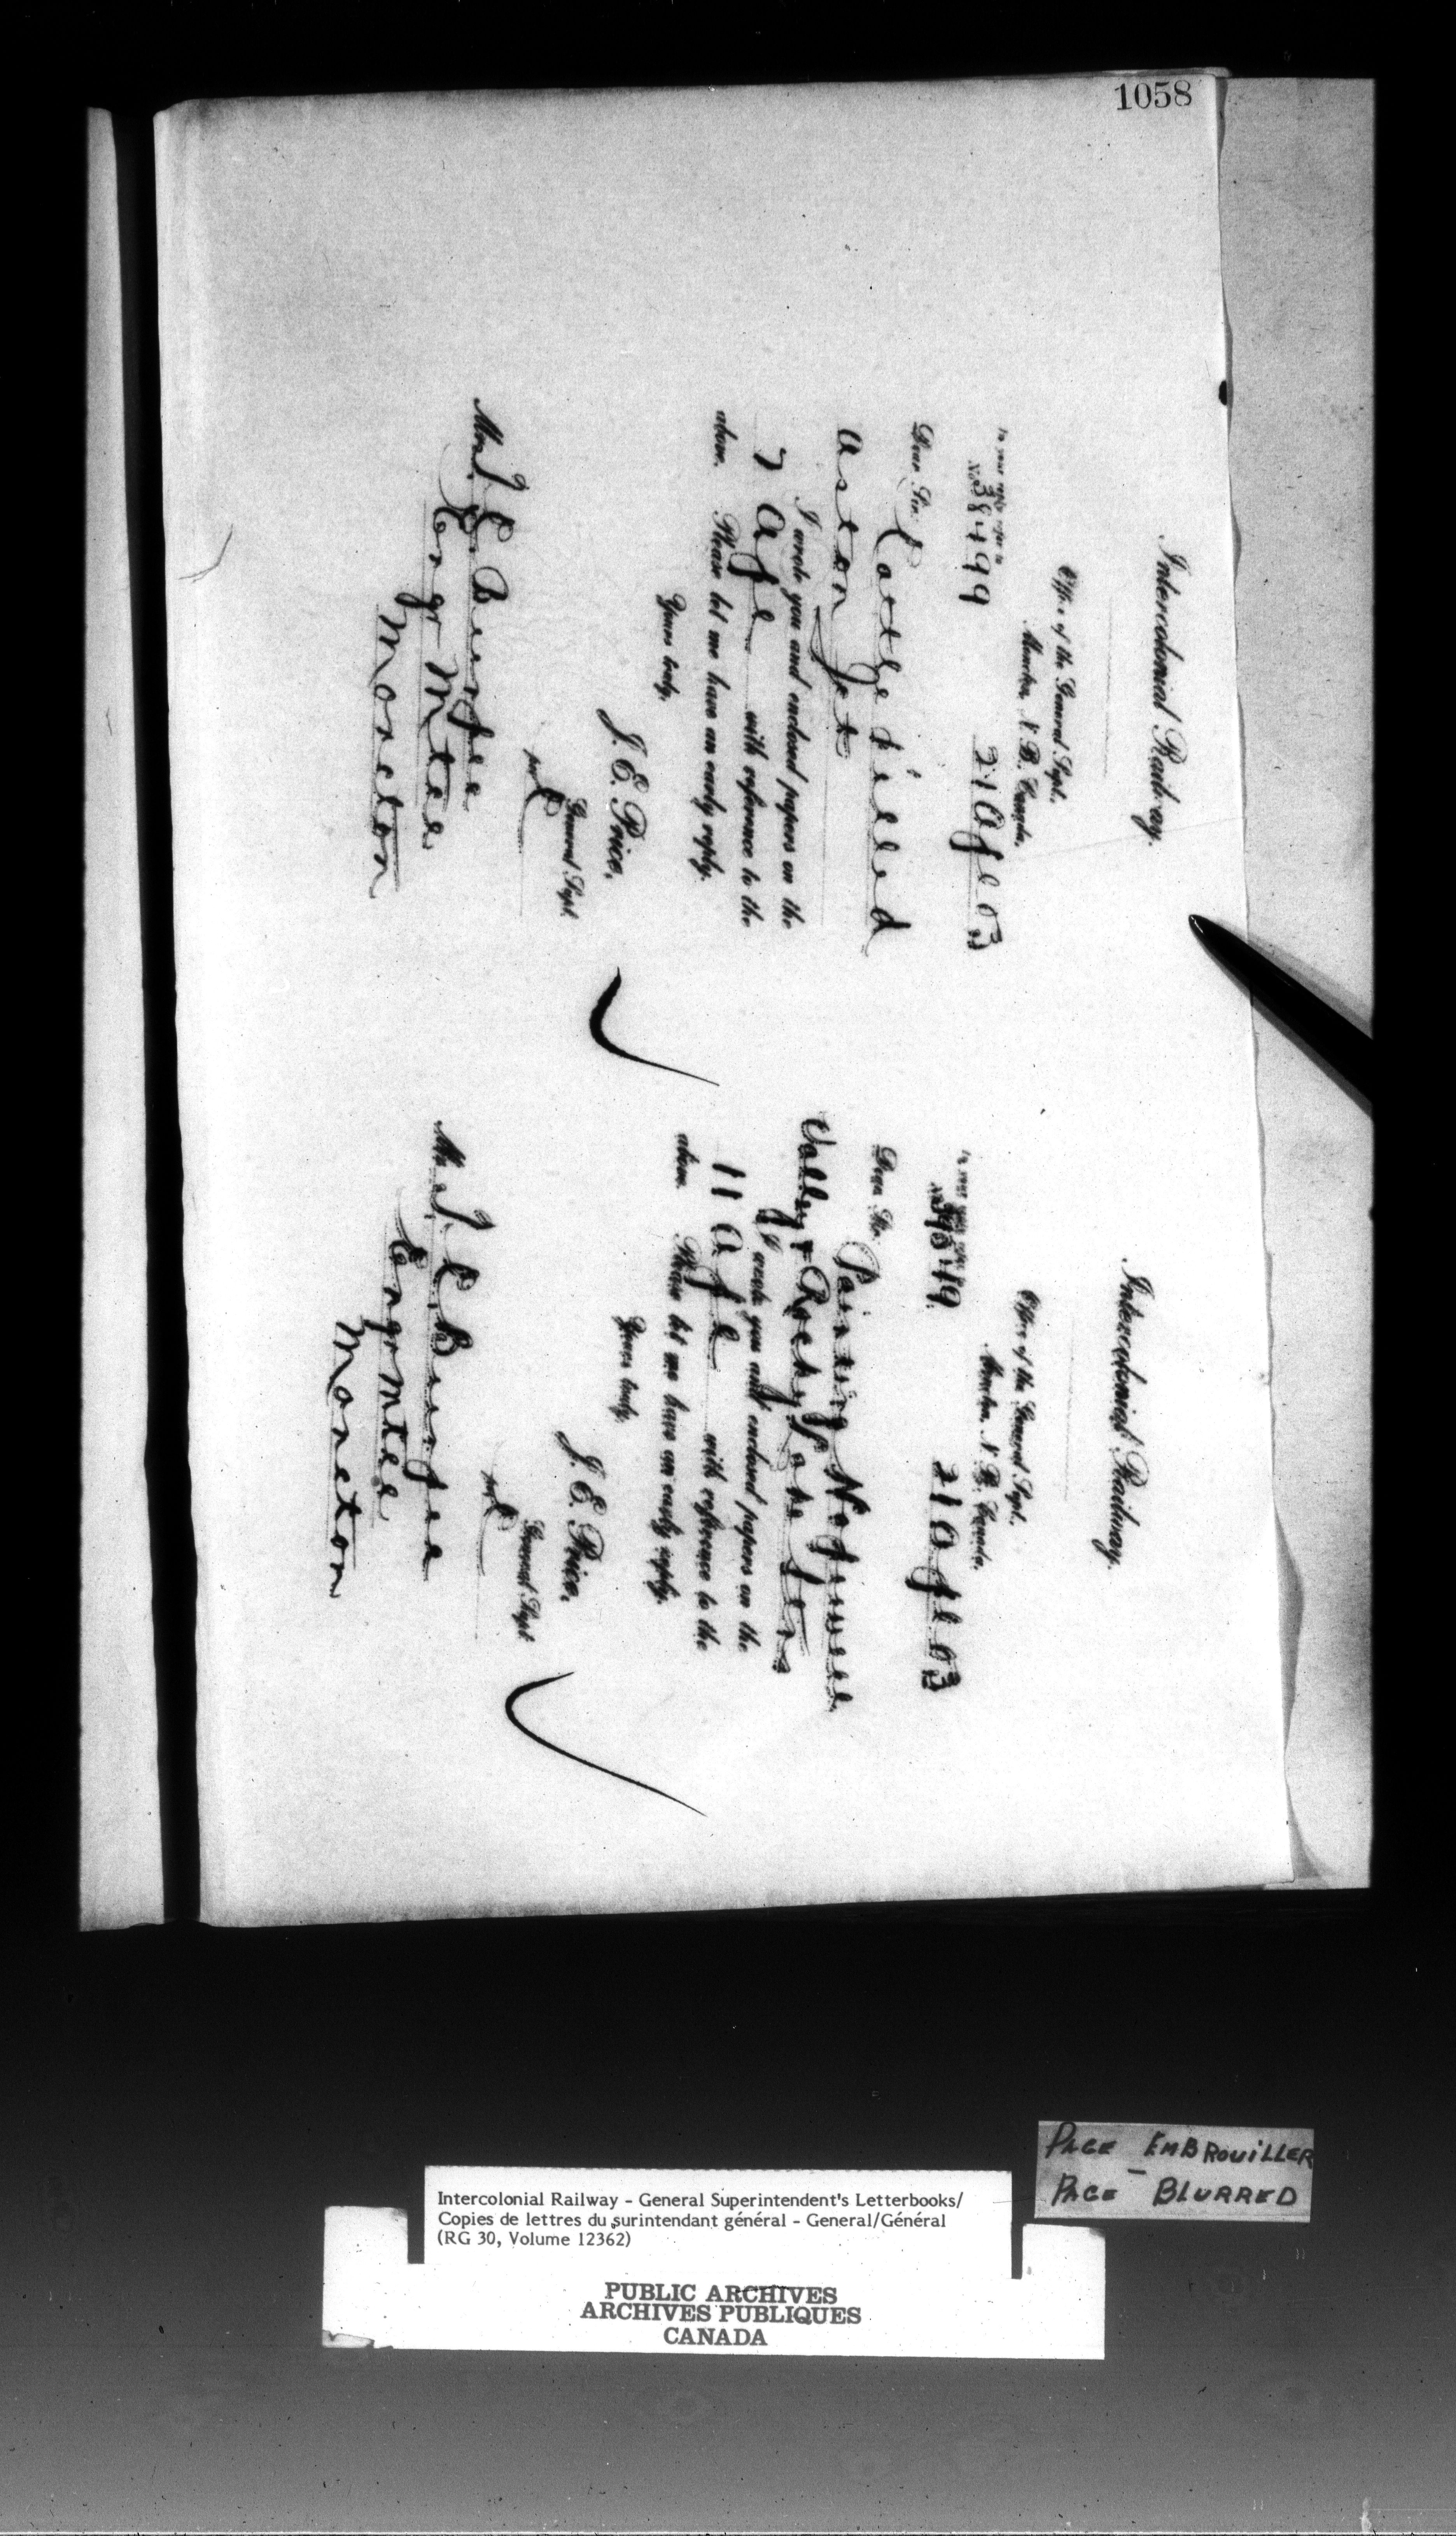 1058
Intercolonial Railway.
Office of the General Supt.
Moncton, N. B. Canada,
In your reply refer to
No. 38499
21 Apl 03
Dear Sir:
Cattle killed
Aston Jct
I wrote you and enclosed papers on the
7 Apl with reference to the
above. Please let me have an early reply.
Yours truly,
J. E. Price,
General Supt.
per
Mr. T. C. Burpee
Engr Mtce
Moncton
Intercolonial Railway.
Office of the General Supt.
Moncton, N. B. Canada,
In your reply refer to
No.
21 Apl 03
Dear Sir:
Painting
Valley & Rocky Lake Stns
I wrote you and enclosed papers on the
11 Apl with reference to the
above. Please let me have an early reply.
Yours truly,
J. E. Price,
General Supt.
per
Mr. T. C. Burpee
Engr Mtce
Moncton
PAGE EMBROUILLER
—
PAGE BLURRED
Intercolonial Railway - General Superintendent's Letterbooks/
Copies de lettres du surintendant général - General/Général
(RG 30, Volume 12362)
PUBLIC ARCHIVES
ARCHIVES PUBLIQUES
CANADA